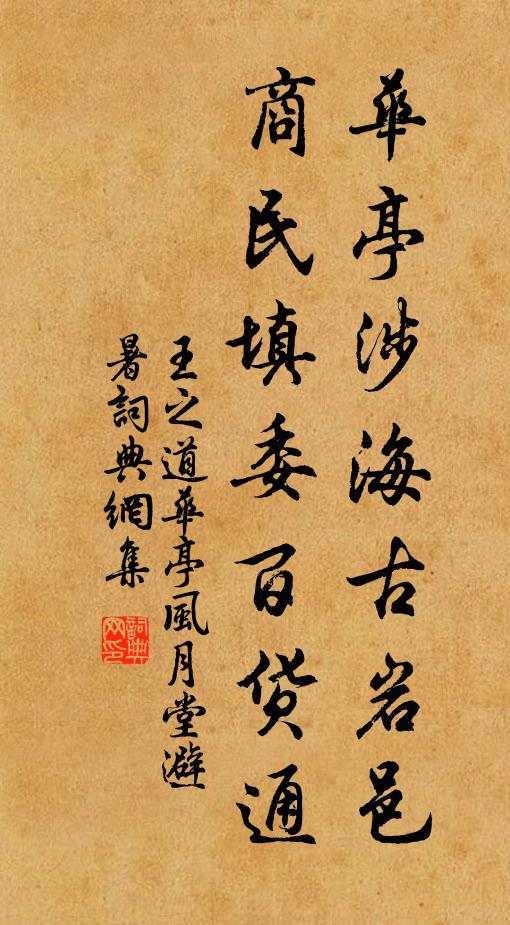 華亭涉海古岩邑
商民填委百貨通
王之道華亭風月堂避
暑詞典網集
詞典网印